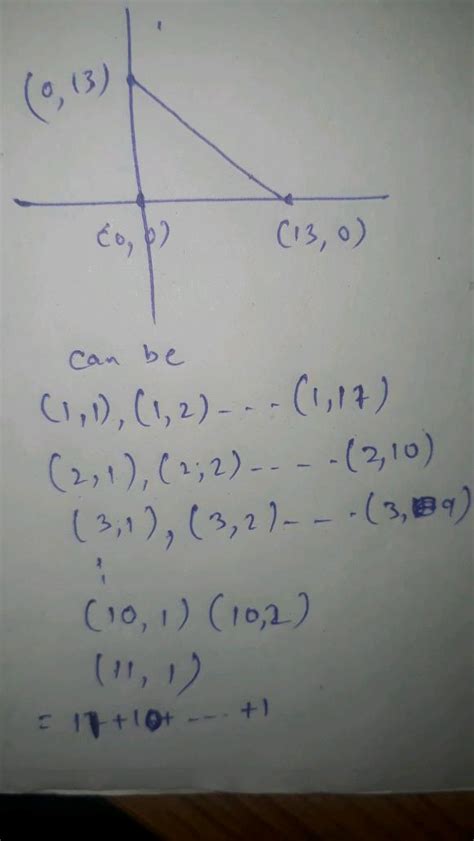 (0, 13)
(0, 0)
(13, 0)
can be
(1,1), (1,2) - - - - (1,17)
(2,1), (2,2) - - - - - (2,10)
(3,1), (3,2) - - - - (3, 9)
⋮
(10,1) (10,2)
(11, 1)
= 17+10+ - - - - +1